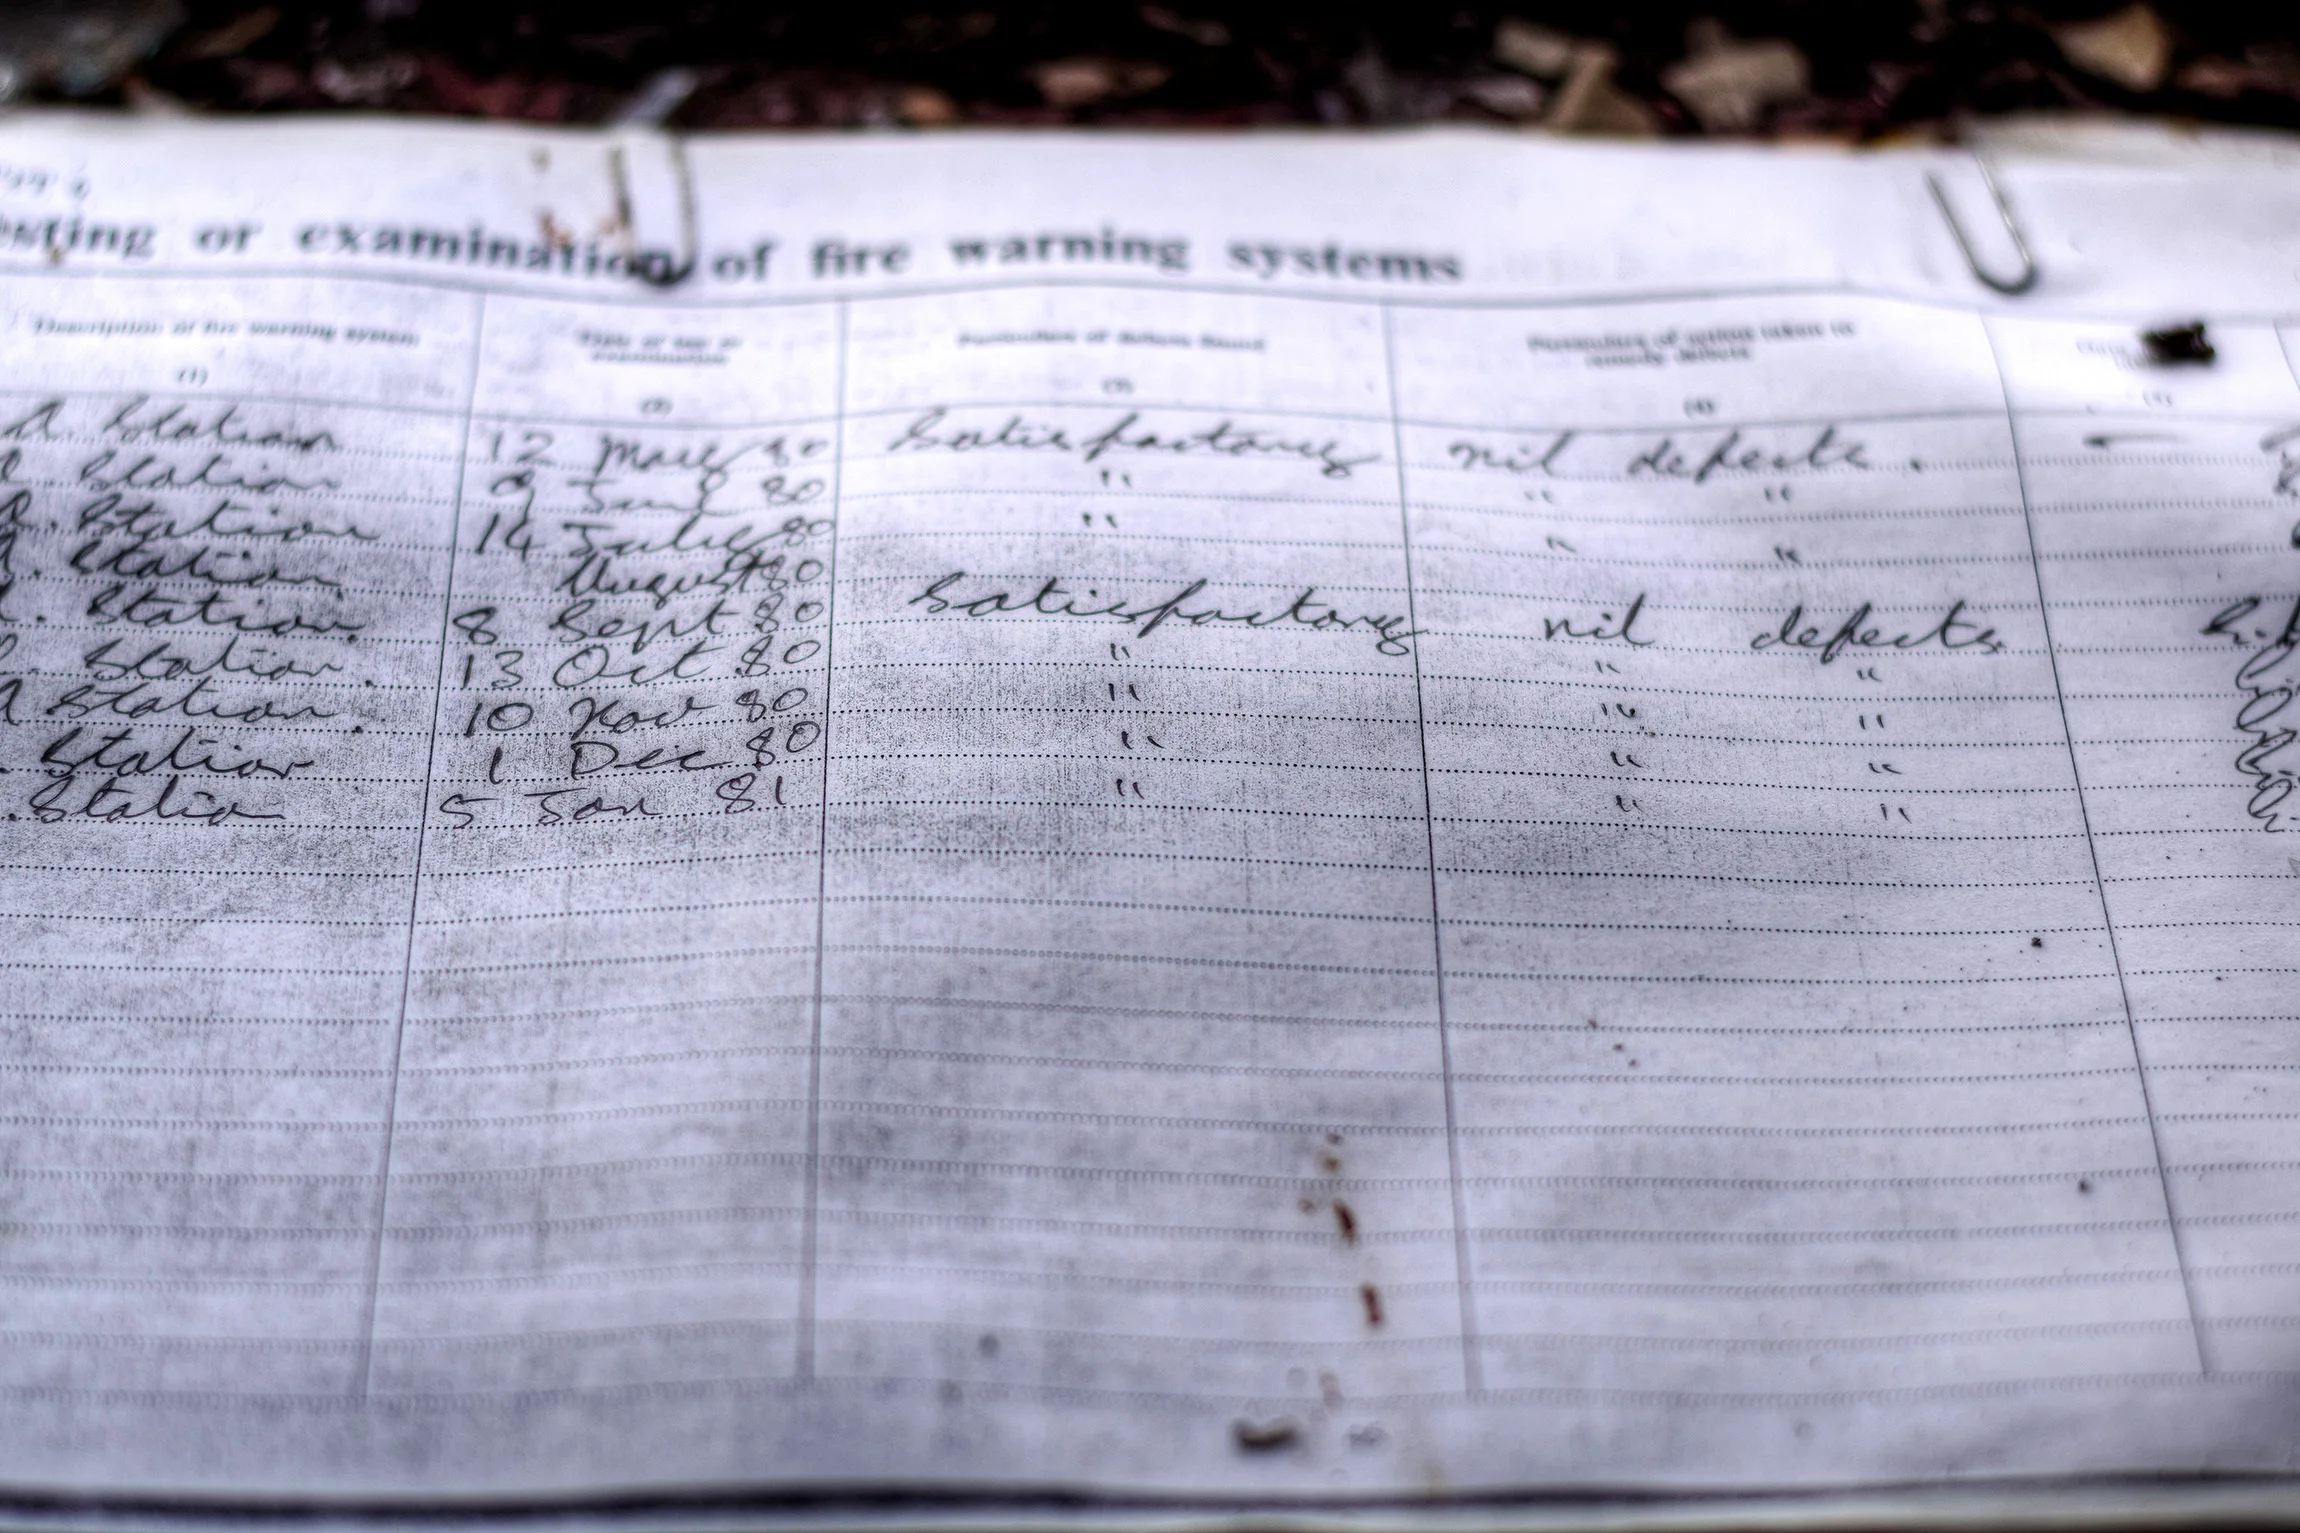 esting or examination of fire warning systems
Description of fire warning system
Date of test or examination
Particulars of defects found
Particulars of action taken to remedy defects
(1) (2) (3) (4) (5)
A. Station 12 May 80 Satisfactory nil defects. —
Station 9 June 80 " " "
A. Station 14 July 80 " " "
A. Station August 80
A. Station. 8 Sept 80 Satisfactory nil defects.
Station. 13 Oct 80 " " "
A Station. 10 Nov 80 " " "
. Station 1 Dec 80 " " "
. Station 5 Jan 81 " " "